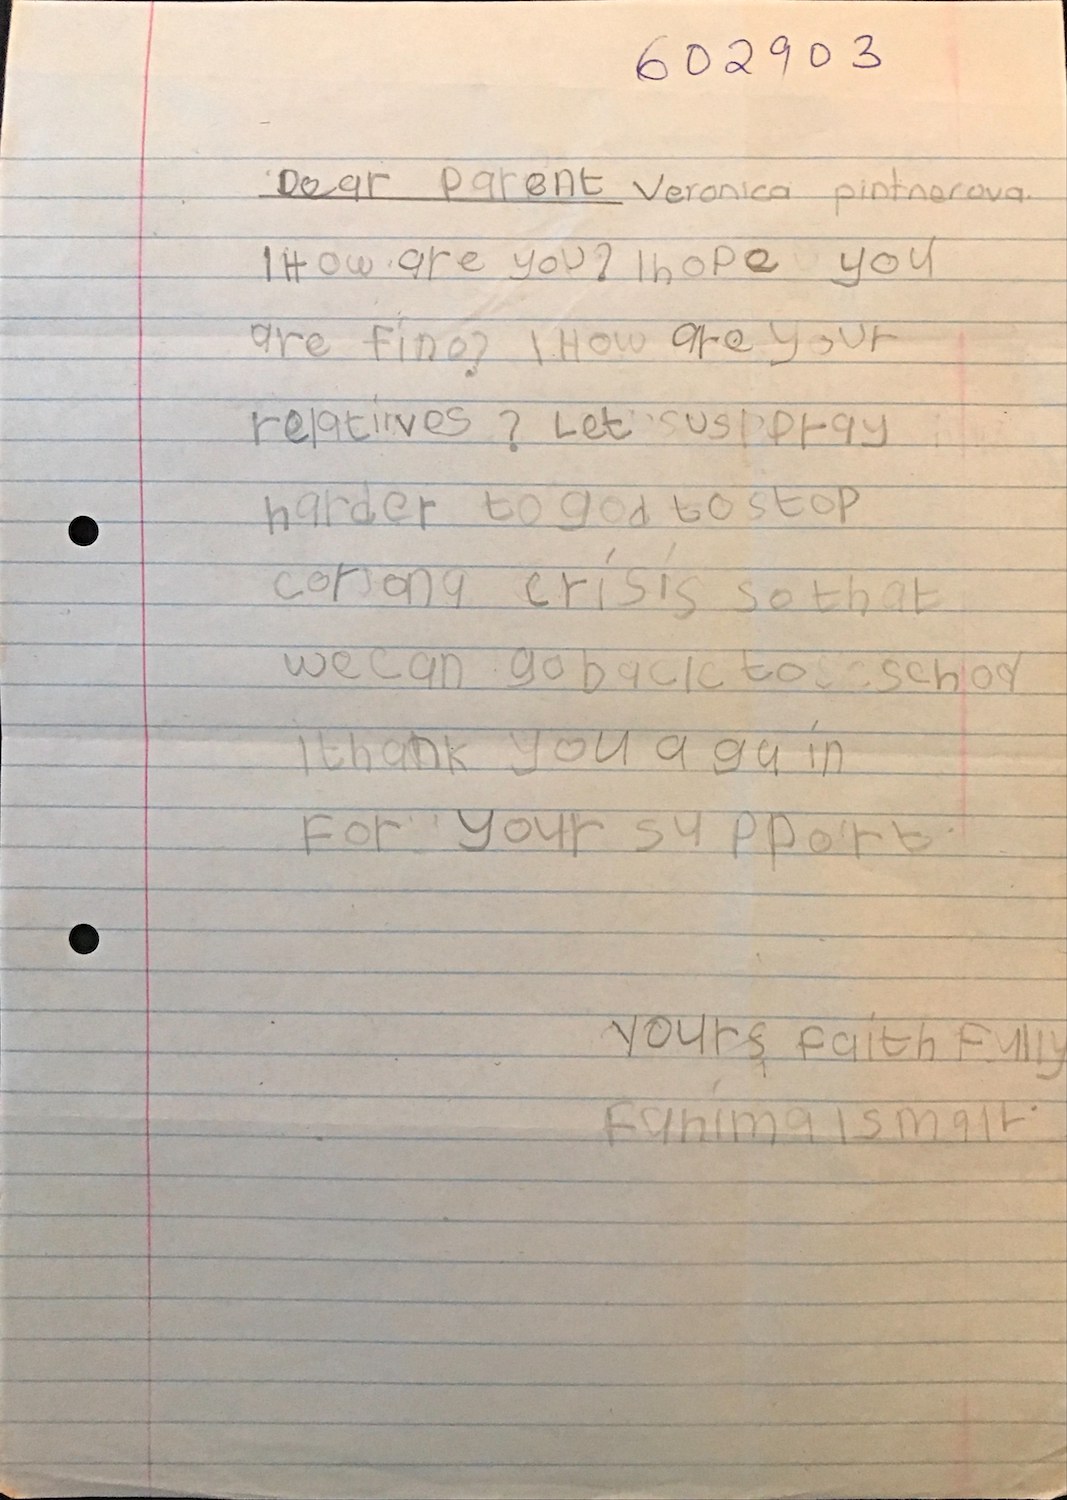 602903
Dear parent Veronica pintnerova.
1How are you? Ihope you
are fine? 1How are your
relatiives ? Let suspray
harder to god to stop
corona crisis so that
wecan go back to school
Ithank you again
For your support.
yours faith Fully
Fahima Ismail.